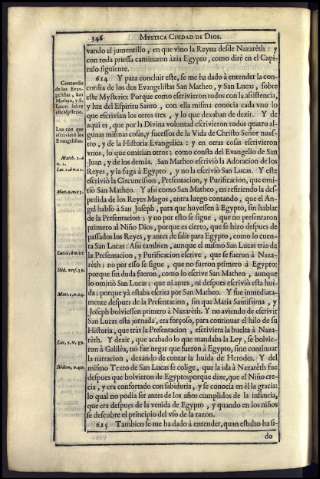 346 MYSTICA CIUDAD DE DIOS.
vando al jumentillo, en que vino la Reyna desde Nazarèth: y
con toda priessa caminaron àzia Egypto, como dirè en el Capi-
tulo siguiente.
614 Y para concluir este, se me ha dado à entender la con-
cordia de los dos Evangelistas San Matheo, y San Lucas, sobre
este Mysterio. Porque como escrivieron todos con la assistencia,
y luz del Espiritu Santo, con ella misma conocia cada uno lo
que escrivian los otros tres, y lo que dexaban de dezir. Y de
aqui es, que por la Divina voluntad escrivieron todos quatro al-
gunas mismas cosas, y sucessos de la Vida de Christo Señor nues-
tro, y de la Historia Evangelica: y en otras cosas escrivieron
unos, lo que omitian otros: como consta del Evangelio de San
Juan, y de los demàs. San Matheo escriviò la Adoracion de los
Reyes, y la fuga à Egypto, y no la escriviò San Lucas. Y este
escriviò la Circuncision, Presentacion, y Purificacion, que omi-
tiò San Matheo. Y assi como San Matheo, en refiriendo la des-
pedida de los Reyes Magos, entra luego contando, que el An-
gel hablò à San Joseph, para que huyessen à Egypto, sin hablar
de la Presentacion: y no por esto se sigue, que no presentaron
primero al Niño Dios, porque es cierto, que se hizo despues de
passados los Reyes, y antes de salir para Egypto, como lo cuen-
ta San Lucas: Assi tambien, aunque el mismo San Lucas tràs de
la Presentacion, y Purificacion escrive, que se fueron à Naza-
rèth: no por esso se sigue, que no fueron primero à Egypto;
porque sin duda fueron, como lo escrive San Matheo, aunque
lo omitiò San Lucas: que ni antes, ni despues escriviò esta hui-
da: porque yà estaba escrita por San Matheo. Y fue inmediata-
mente despues de la Presentacion, sin que Maria Santissima, y
Joseph bolviessen primero à Nazarèth. Y no aviendo de escrivir
San Lucas esta jornada, era forçoso, para continuar el hilo de su
Historia, que tras la Presentacion, escriviera la buelta à Naza-
rèth. Y dezir, que acabado lo que mandaba la Ley, se bolvie-
ron à Galilèa, no fue negar que fueron à Egypto, sino continuar
la narracion, dexando de contar la huida de Herodes. Y del
mismo Texto de San Lucas se colige, que la ida à Nazarèth fue
despues que bolvieron de Egypto; porque dize, que el Niño cre-
cia, y era confortado con sabiduria, y se conocia en èl la gracia:
lo qual no podia ser antes de los años cumplidos de la infancia,
que era despues de la venida de Egypto, y quando en los niños
se descubre el principio del uso de la razon.
615 Tambien se me ha dado à entender, quan estulto ha si-
do